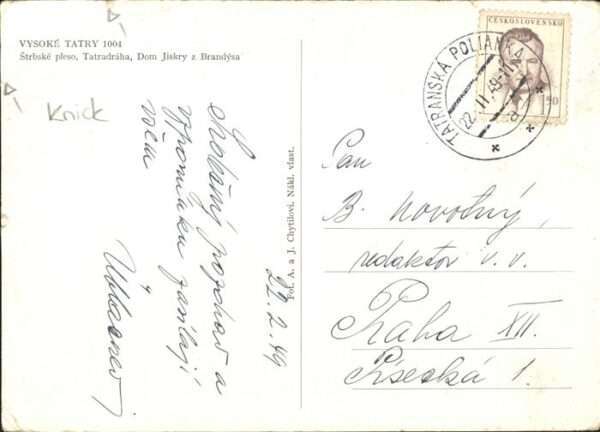 VYSOKÉ TATRY 1004
Štrbské pleso, Tatradráha, Dom Jiskry z Brandýsa
Knick
Srdečný pozdrav a
vzpomínku zasílají
všem
22.2.49
Fot. A. a J. Chytilovi. Nákl. vlast.
ČESKOSLOVENSKO
1.50
TATRANSKÁ POLIANKA
22.II.49-11
a
Pan
B. Novotný,
redaktor v. v.
Praha XII.
Písecká 1.